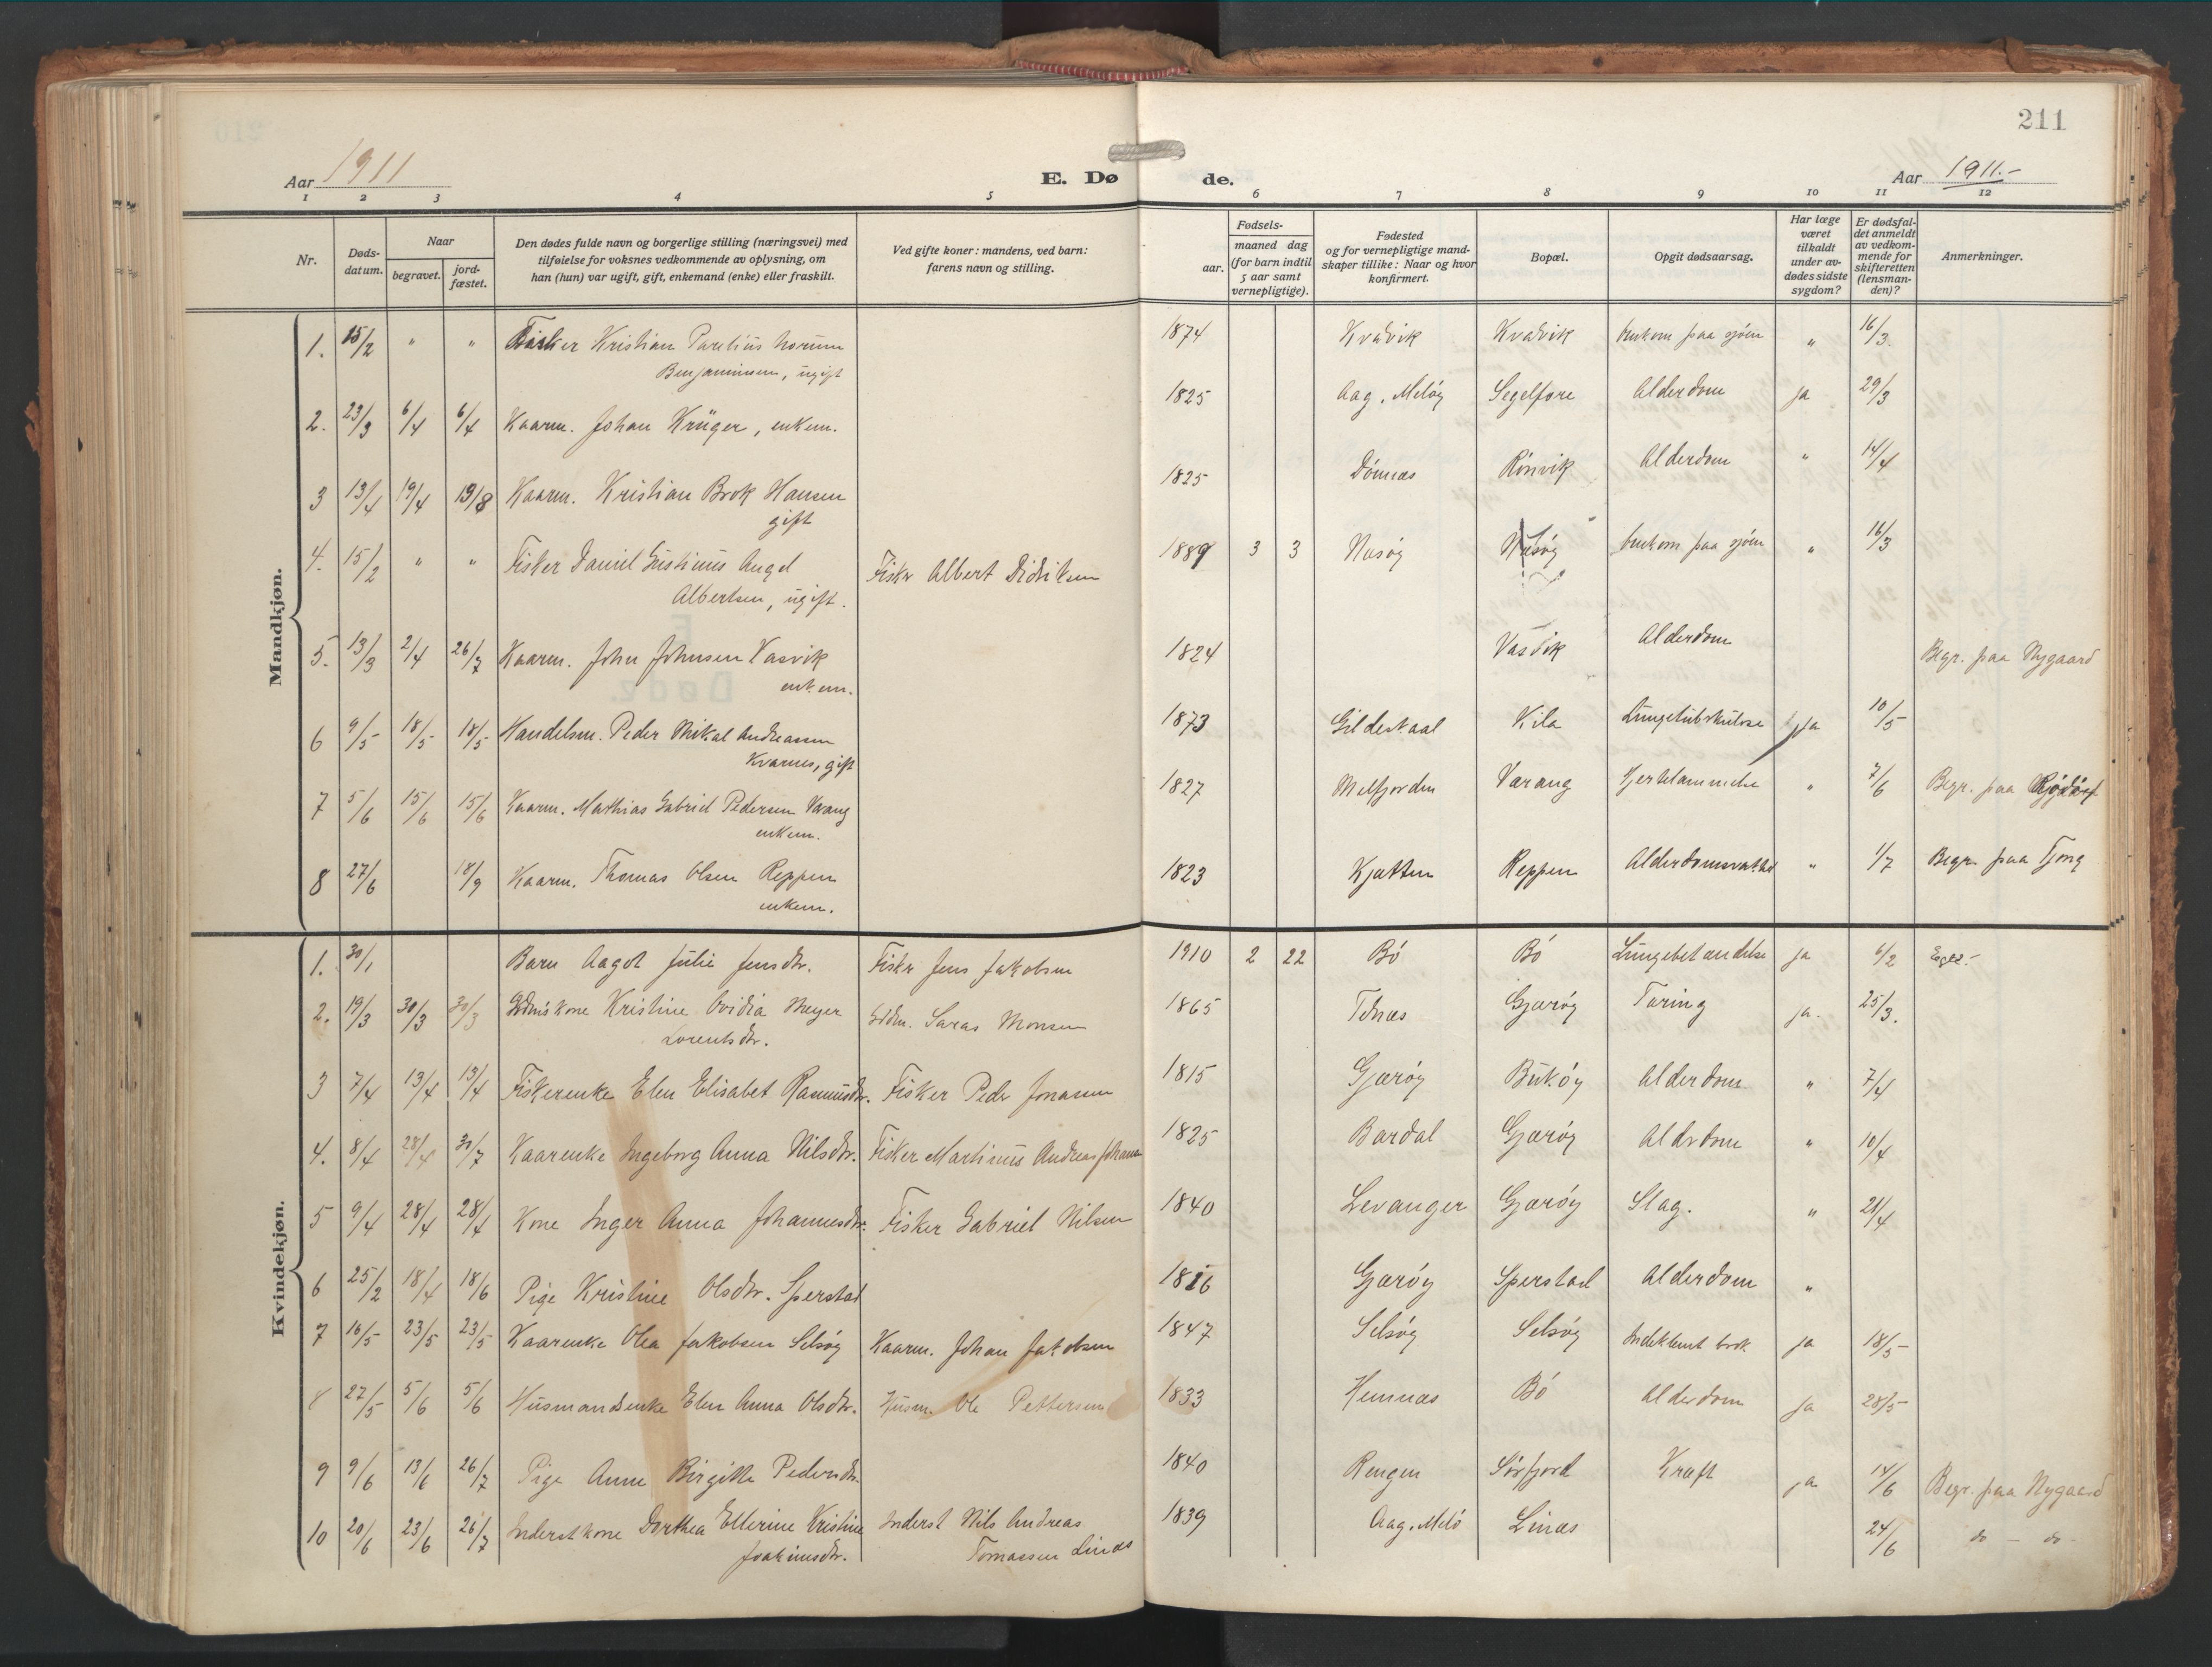 211
Aar 1911
E. Døde.
Aar 1911.-
1 2 3 4 5 6 7 8 9 10 11 12
Nr.
Døds-datum.
Naar
begravet.
jord-fæstet.
Den dødes fulde navn og borgerlige stilling (næringsvei) med
tilføielse for voksnes vedkommende av oplysning, om
han (hun) var ugift, gift, enkemand (enke) eller fraskilt.
Ved gifte koner: mandens, ved barn:
farens navn og stilling.
Fødsels-
aar.
maaned dag
(for barn indtil
5 aar samt
vernepligtige).
Fødested
og for vernepligtige mand-
skaper tillike: Naar og hvor
konfirmert.
Bopæl.
Opgit dødsaarsag.
Har læge
været
tilkaldt
under av-
dødes sidste
sygdom?
Er dødsfal-
det anmeldt
av vedkom-
mende for
skifteretten
(lensman-
den)?
Anmerkninger.
Mandkjøn.
1. 15/2 " " Fisker Kristian Parelius Norum 1874 Kvævik Kvævik Omkom paa sjøen " 16/3.
Benjaminsen, ugift
2. 23/3 6/4 6/4 Kaarm. Johan Krüger, enkem. 1825 Aag, Meløy Segelfore Alderdom ja 29/3
3 13/4 19/4 19/8 Kaarm. Kristian Brok Hansen 1825 Dønnæs Rønvik Alderdom " 14/4
gift
4. 15/2 " " Fisker Daniel Gustinus Angel Fisker Albert Didriksen 1889 3 3 Næsøy Næsøy Omkom paa sjøen " 16/3
Albertsen, ugift.
5. 13/3 2/4 26/7 Kaarm. John Johnsen Vasvik 1824 Vasvik Alderdom Begr. paa Nygaard
enkem.
6 9/5 18/5 18/5 Handelsm. Peder Mikal Andreassen 1873 Gildeskaal Kila Lungetuberkulose Ja 10/5
Kvarnes, gift
7 5/6 15/6 15/6 Kaarm. Mathias Gabriel Pedersen Varang 1827 Melfjorden Varang Hjertelammelse " 7/6 Begr. paa Rødøy
enkem.
8 27/6 18/9 Kaarm. Thomas Olsen Reppen 1823 Kjatten Reppen " 1/7 Begr. paa Tjong
enkem.
Kvindekjøn.
1. 30/1 Barn Aagot Julie Jensdtr. Fisker Jens Jakobsen 1910 2 22 Bø Bø Lungebetændelse ja 6/2
2. 19/3 30/3 30/3 Kristine Ovidia Meyer Saras Monsen 1865 Tonæs Gjærøy Tæring ja. 25/3.
Lorentsdtr.
3 7/4 13/4 13/4 Fiskerenke Elen Elisabet Rasmusdtr. Fisker Peder Jonassen 1815 Gjærøy Bukøy Alderdom " 7/4
4. 8/4 28/4 30/7 Kaarenke Ingeborg Anna Nilsdtr. Fisker Martinus Andreas Johansen 1825 Bardal Gjærøy Alderdom " 10/4
5 9/4 28/4 28/4 Kone Inger Anna Johannesdtr. Fisker Gabriel Nilsen 1840 Levanger Gjærøy Slag. " 21/4
6 25/2 18/4 18/6 Pige Kristine Olsdtr. Sperstad 1826 Gjærøy Sperstad Alderdom "
7 16/5 23/5 23/5 Kaarenke Olea Jakobsen Selsøy Kaarm. Johan Jakobsen 1847 Selsøy Selsøy Indeklemt brok ja 18/5
8 27/5 5/6 5/6 Husmandsenke Elen Anna Olsdtr. Husm. Ole Pettersen 1833 Hemnæs Bø Alderdom ja 28/5
9 9/6 13/6 26/7 Pige Anne Birgitte Pedersdtr. 1840 Rengen Sørfjord Kræft ja 14/6 Begr. paa Nygaard
10 20/6 23/6 26/7 Inderstkone Dorthea Ellerine Kristine Inderst Nils Andreas 1839 Aag, Melø Linæs 24/6 do - do -
Joakimsdtr. Tomassen Linæs